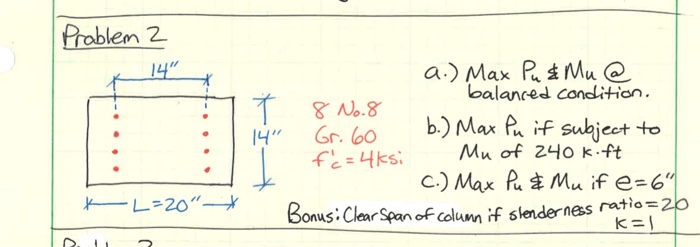 Problem 2
14"
14"
L=20"
8 No.8
Gr. 60
f'c = 4ksi
a.) Max Pu & Mu @
balanced condition.
b.) Max Pu if subject to
Mu of 240 k·ft
c.) Max Pu & Mu if e=6"
Bonus: Clear Span of column if slenderness ratio=20
k=1